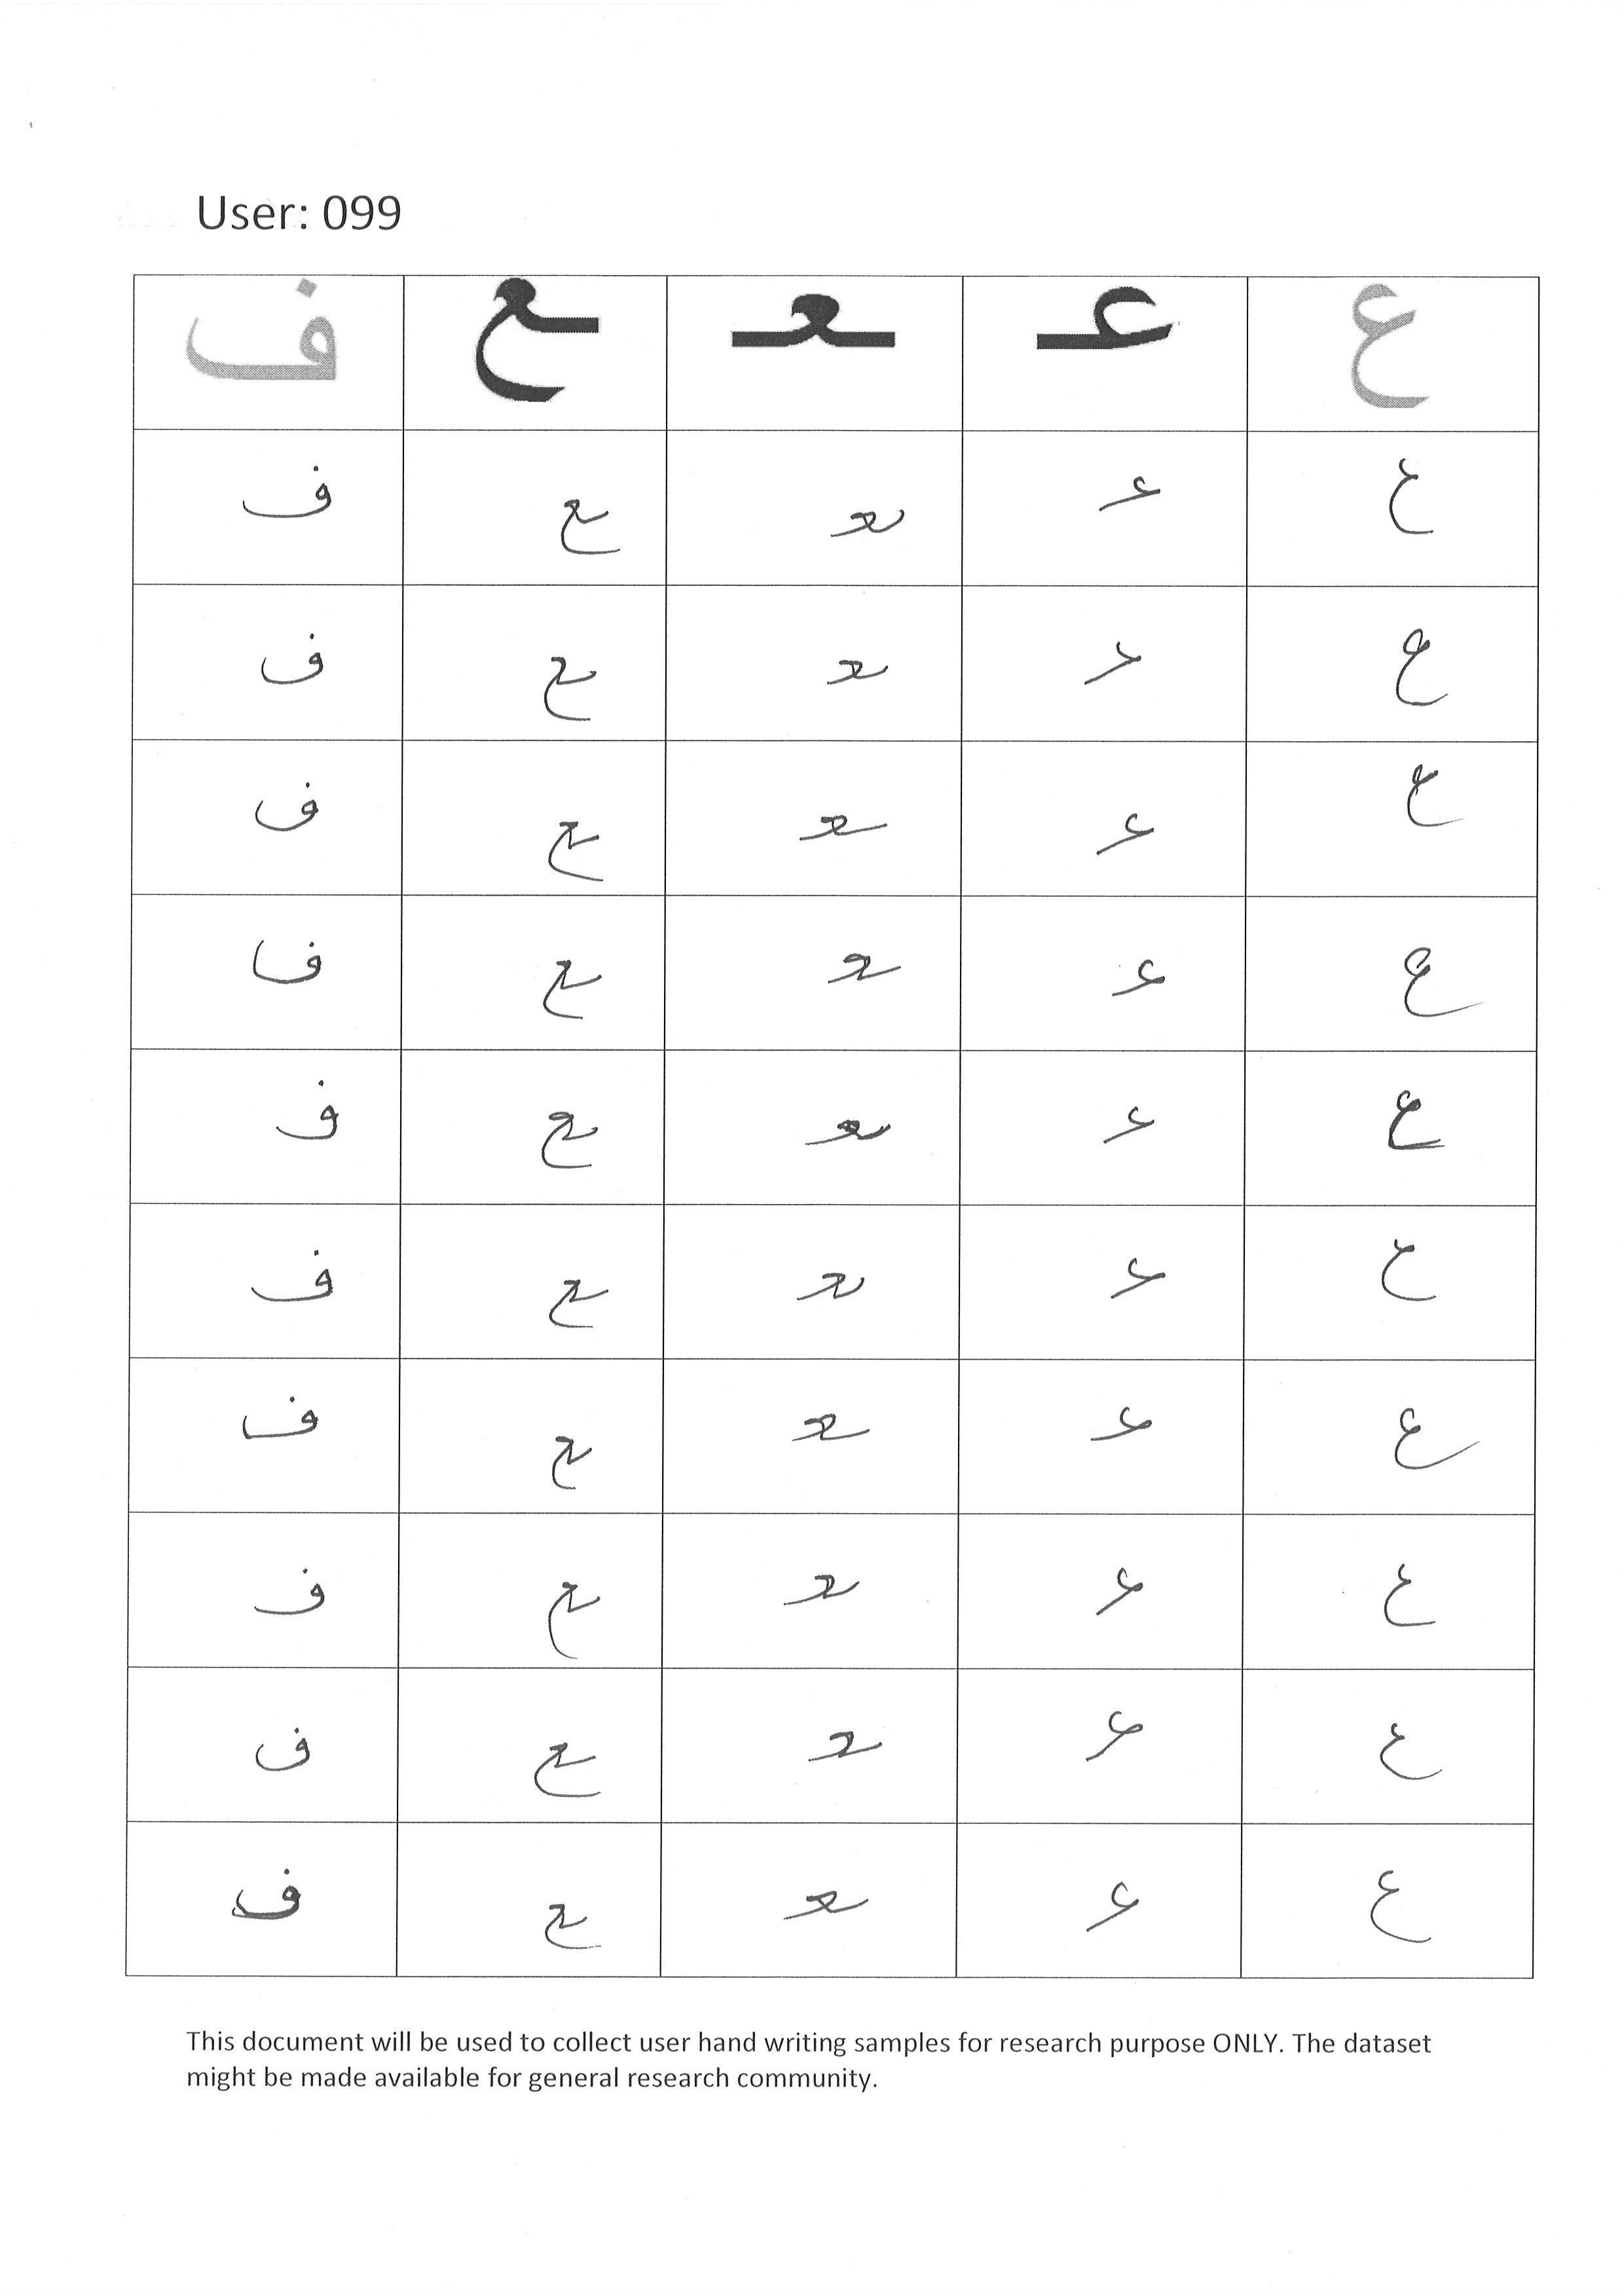 User: 099
ع عـ ـعـ ـع ف
ع عـ ـعـ ـع ف
ع عـ ـعـ ـع ف
ع عـ ـعـ ـع ف
ع عـ ـعـ ـع ف
ع عـ ـعـ ـع ف
ع عـ ـعـ ـع ف
ع عـ ـعـ ـع ف
ع عـ ـعـ ـع ف
ع عـ ـعـ ـع ف
ع عـ ـعـ ـع ف
This document will be used to collect user hand writing samples for research purpose ONLY. The dataset
might be made available for general research community.